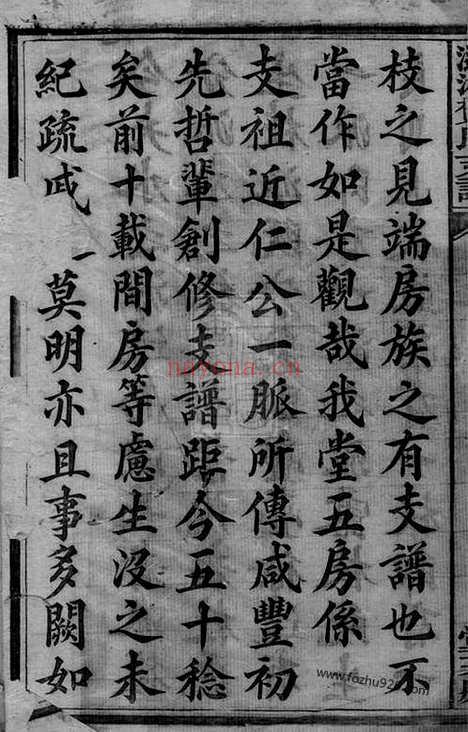 枝之見端房族之有支譜也不
當作如是觀哉我堂五房係
支祖近仁公一脈所傳咸豐初
先哲輩創修支譜距今五十稔
矣前十載間房等慮生沒之未
紀疏戚莫明亦且事多闕如
nayona.cn
www.fozhu920.com